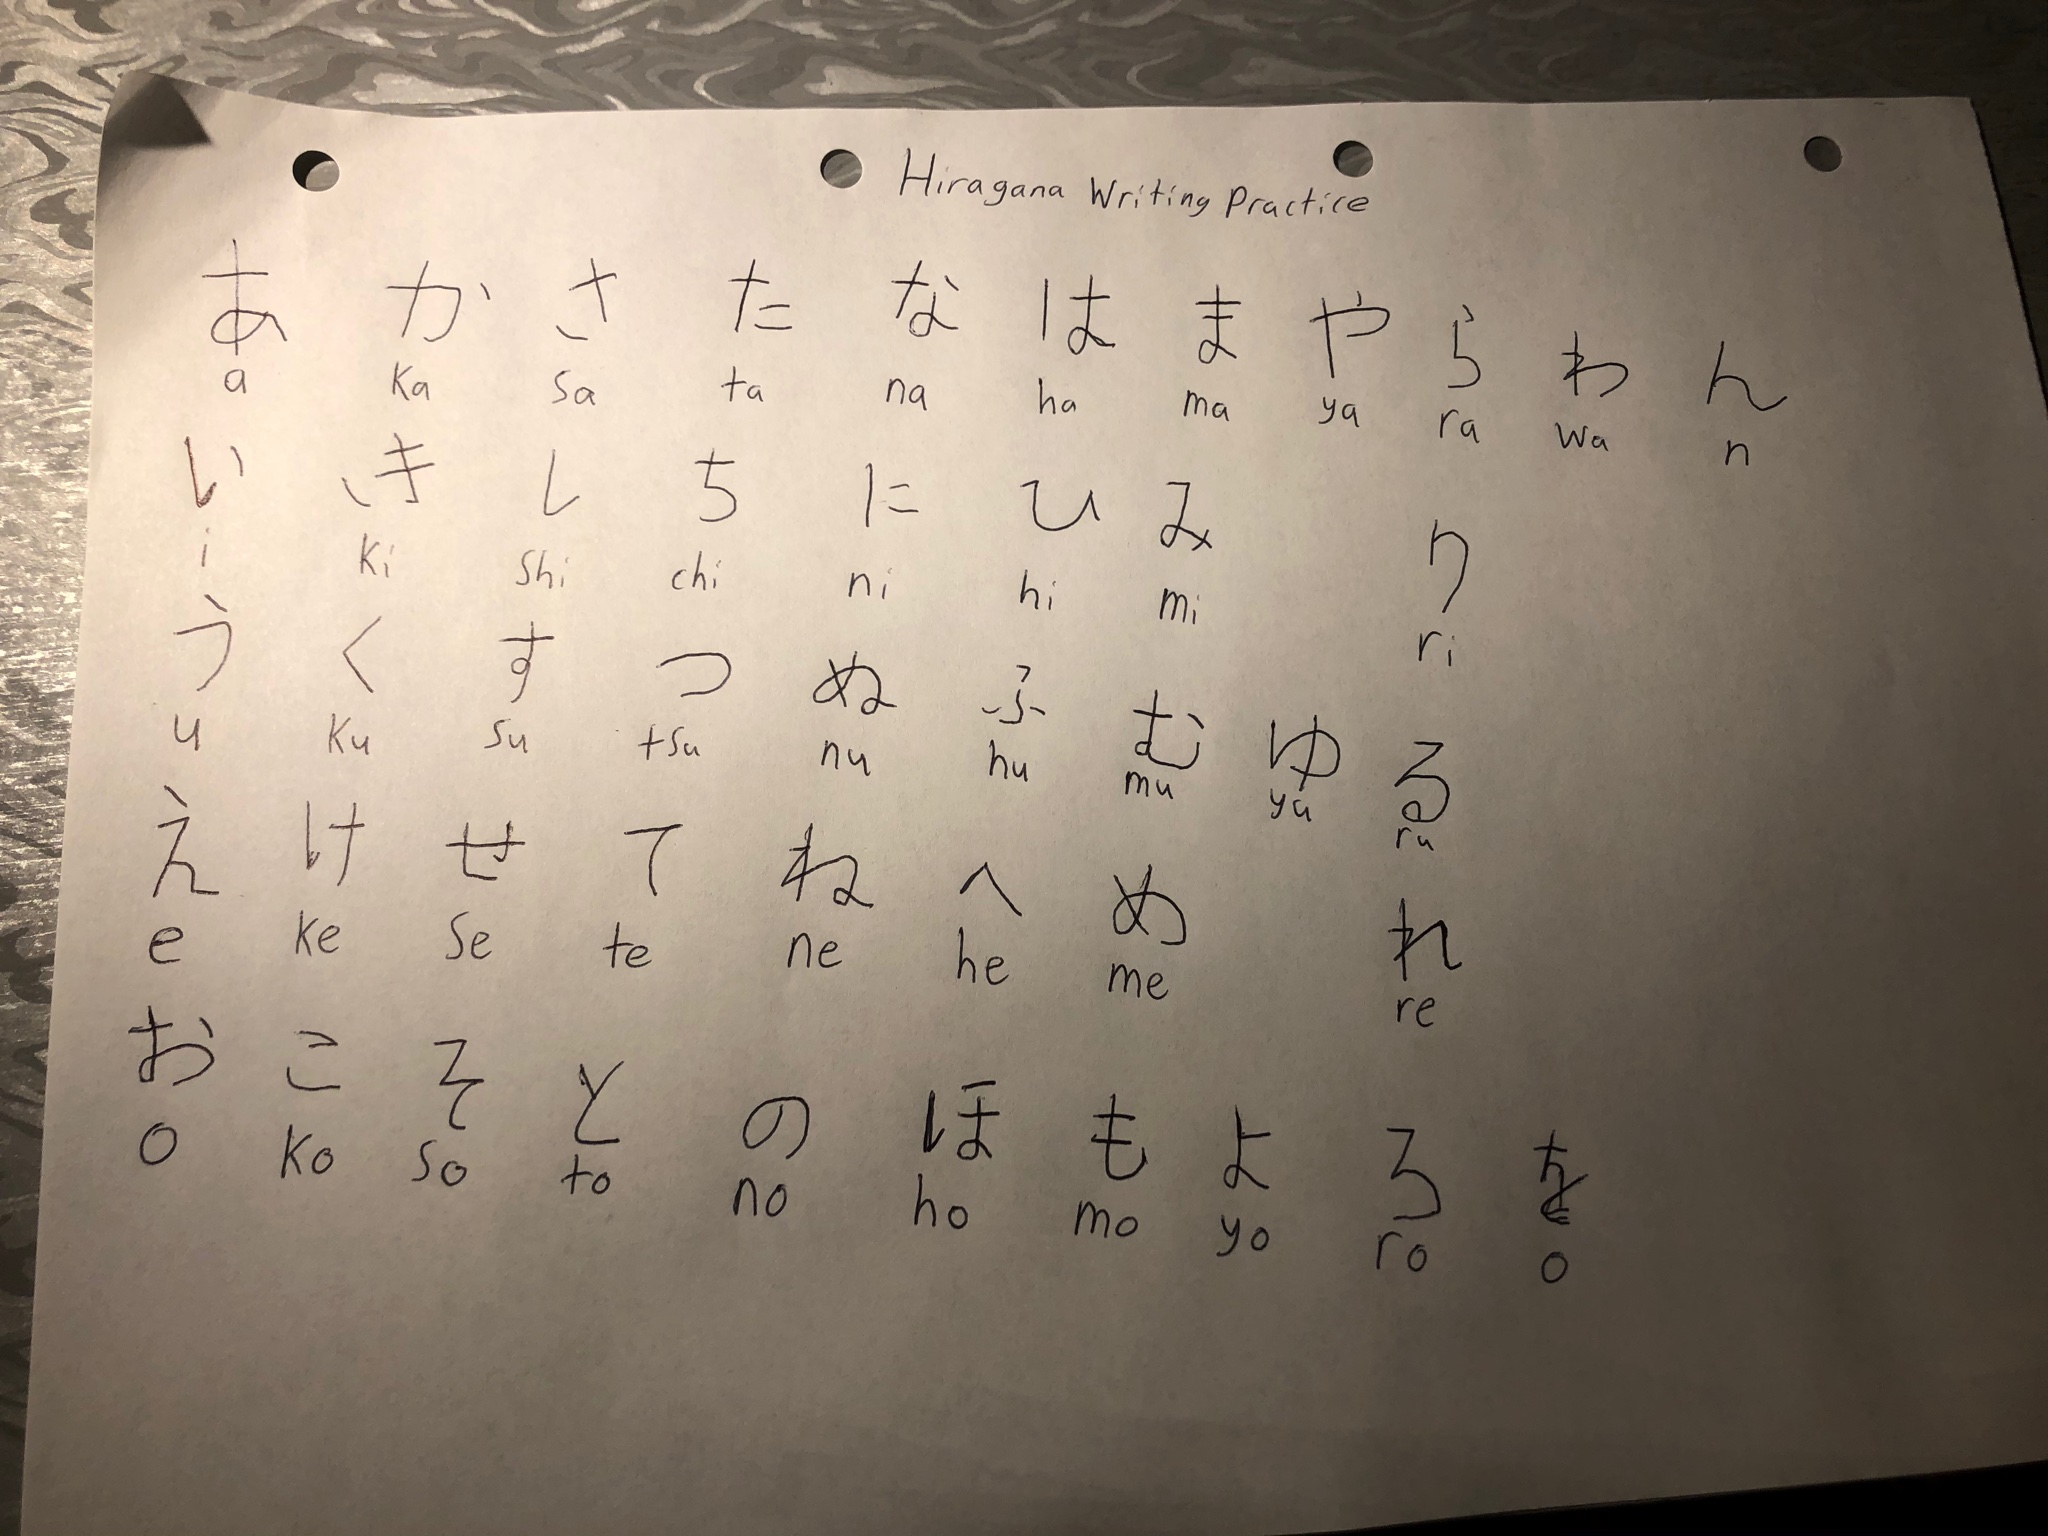 Hiragana Writing Practice
あ か さ た な は ま や ら わ ん
a ka sa ta na ha ma ya ra wa n
い き し ち に ひ み り
i ki shi chi ni hi mi ri
う く す つ ぬ ふ む ゆ る
u ku su tsu nu hu mu yu ru
え け せ て ね へ め れ
e ke se te ne he me re
お こ そ と の ほ も よ ろ を
o ko so to no ho mo yo ro o